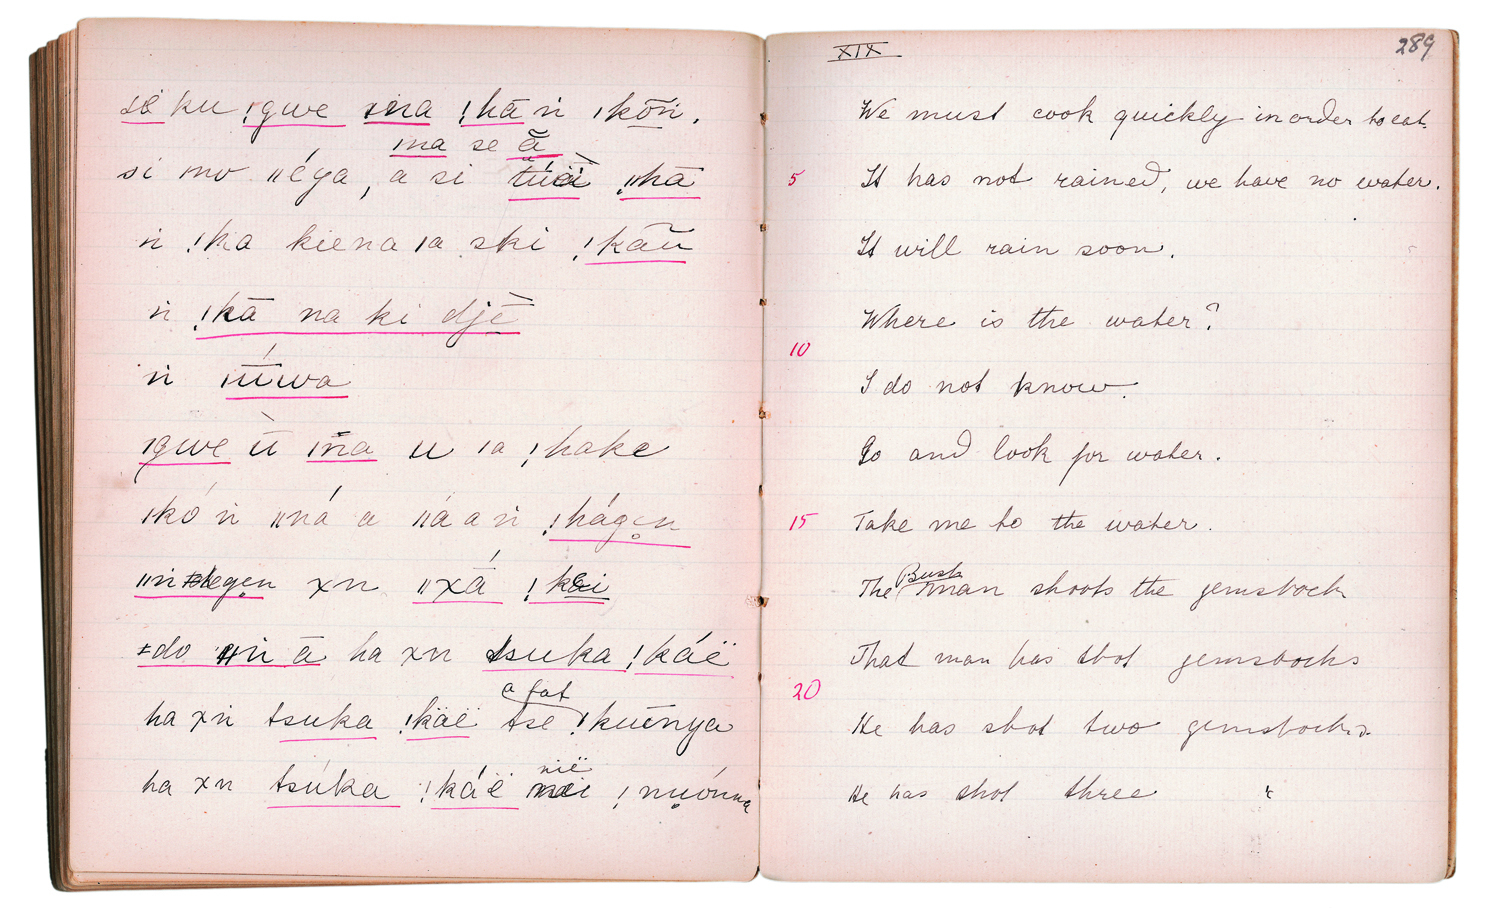 sė ku !gwe ına !kā ṅ ıkōṅ.
ına se ã
si ıno ǁéya, a si ǁkā
ṅ !ka kiena ıa ski !kāū
ṅ !kā na ki djè
ṅ ıúwa
ıgwe ù ına u ıa !hake
ıkó ṅ ǁná a ǁá a ṅ !hágen
ǁṅ egen xn ǁxā́ !kai
ǂdo ǁṅ ā ha xn tsuka !káë
a fat
ha xṅ tsuka !käë tse !kuēnya
nië
ha xn tsúka !káë !nuónna
XIX
289
We must cook quickly in order to eat.
5 It has not rained, we have no water.
It will rain soon.
Where is the water?
10
I do not know.
Go and look for water.
15 Take me to the water.
Bush
The man shoots the gemsbock
That man has shot gemsbocks
20
He has shot two gemsbocks.
He has shot three "